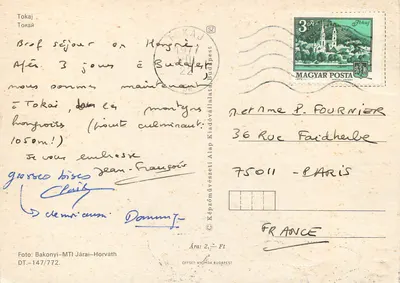 Tokaj
Токай
Bref séjour en Hongrie
Après 3 jours à Budapest
nous sommes maintenant
à Tokai, dans les montagnes
hongroises (point culminant:
1050m!)
Je vous embrasse
Jean-François
grosses bises
moi aussi
Foto: Bakonyi–MTI Járai–Horváth
DT.-147/772.
© Képzőművészeti Alap Kiadóvállalata, Budapest
Ára: 2,– Ft
3 Ft
MAGYAR POSTA
M. et Mme P. FOURNIER
36 Rue Faidherbe
75011 - PARIS
FRANCE